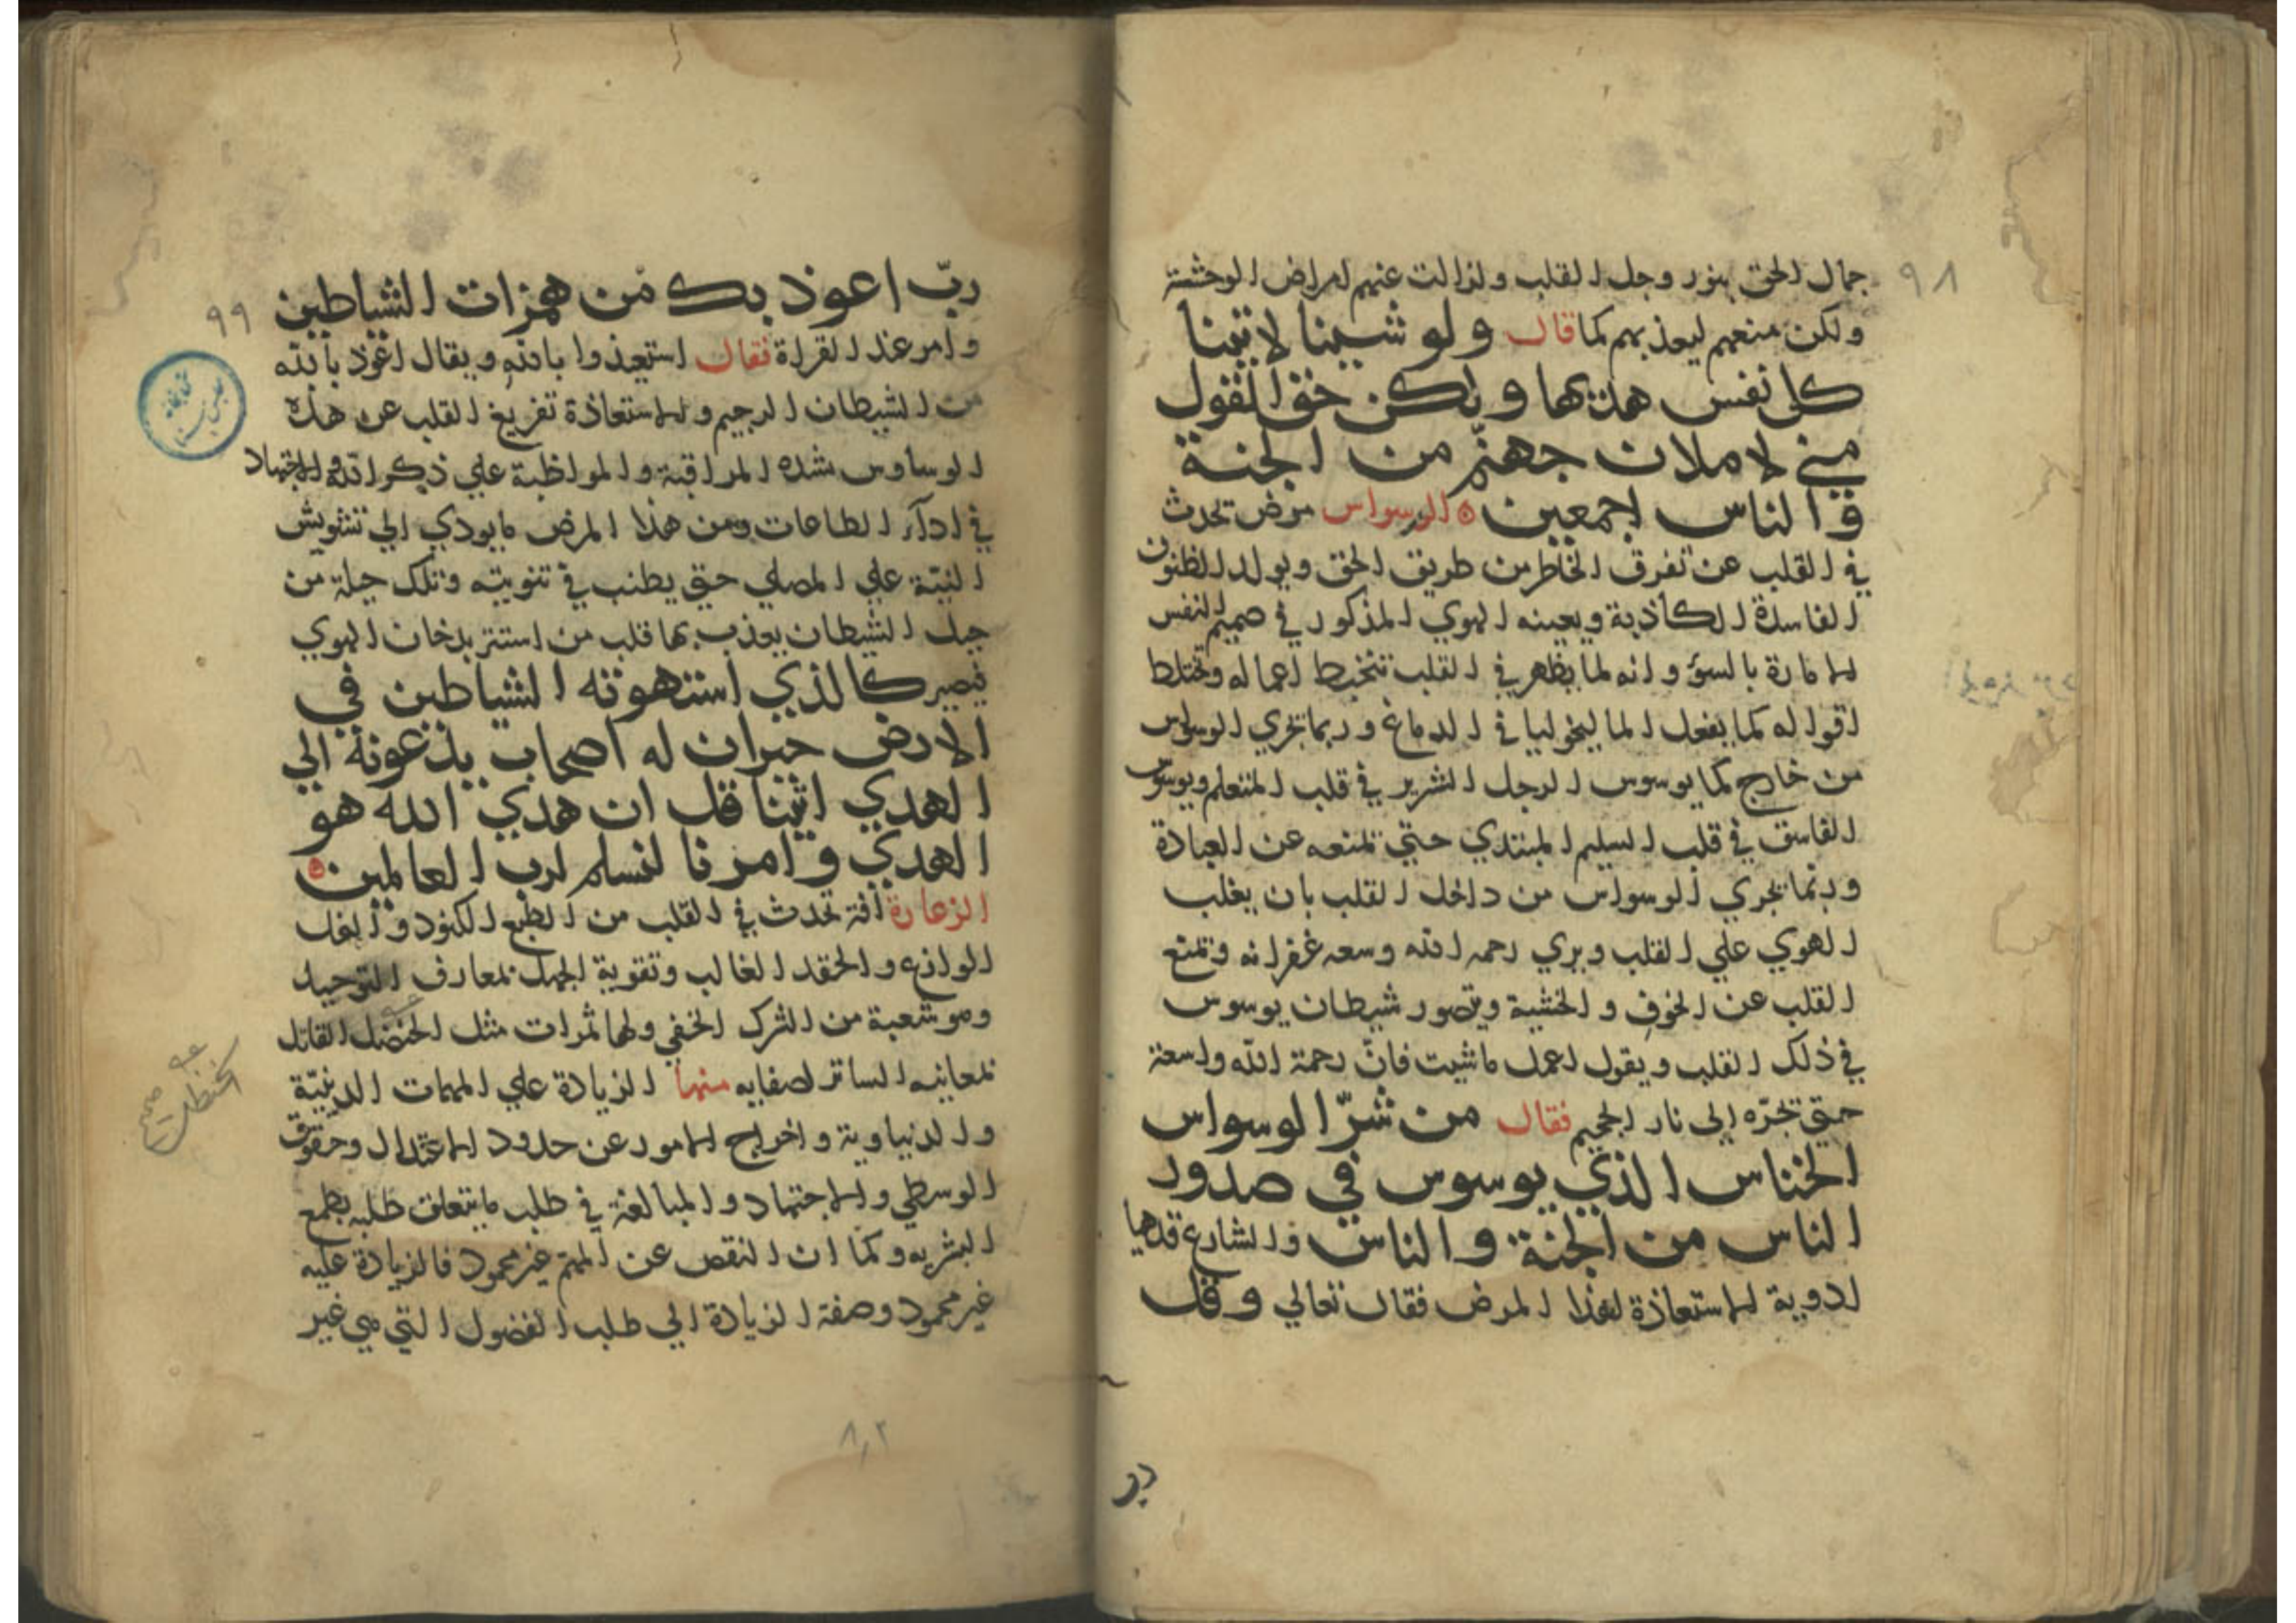 ٩٨
جمال الحق بنور وجل القلب ولزالت عنهم امراض الوحشة
ولكن منعهم ليعذبهم كما قال ولو شئنا لاتينا
كل نفس هديها ولكن حق القول
مني لاملان جهنم من الجنة
والناس اجمعين الوسواس مرض تحدث
في القلب عن تفرق الخاطر من طريق الحق ويولد الظنون
الفاسدة الكاذبة ويعينه الهوي المذكور في صميم النفس
الامارة بالسوء وانه لما يظهر في القلب تتخبط اعماله وتختلط
اقواله كما يفعل الماليخوليا في الدماغ وربما يجري الوسواس
من خارج كما يوسوس الرجل الشرير في قلب المتعلم ويوسوس
الفاسق في قلب السليم المبتدي حتي تمنعه عن العبادة
وربما يجري الوسواس من داخل القلب بان يغلب
الهوي علي القلب ويري رحمه الله وسعه غفرانه وتمنع
القلب عن الخوف والخشية ويتصور شيطان يوسوس
في ذلك القلب ويقول اعمل ما شيت فانّ رحمة الله واسعة
حتي تجرّه الي نار الجحيم فقال من شرّ الوسواس
الخناس الذي يوسوس في صدور
الناس من الجنة والناس والشارع قد هيا
ادوية الاستعاذة لهذا المرض فقال تعالي وقل
رب
٩٩
ربّ اعوذ بك من همزات الشياطين
وامر عند القراة فقال استعيذوا بالله ويقال اعوذ بالله
من الشيطان الرجيم والاستعاذة تفريغ القلب عن هذه
الوساوس بشده المراقبة والمواظبة علي ذكر الله والاجتهاد
في ادآء الطاعات ومن هذا المرض ما يودي الي تشويش
النيّة علي المصلي حتي يطنب في تنويته وتلك حيلة من
حيل الشيطان يعذب بها قلب من استتر بدخان الهوي
فيصير كالذي استهوته الشياطين في
الارض حيران له اصحاب يدعونه الي
الهدي ائتنا قل ان هدي الله هو
الهدي وامرنا لنسلم لرب العالمين
الزعارة افة تحدث في القلب من الطبع الكنود والغل
الوازع والحقد الغالب وتقوية الجهل بمعارف التوحيد
وهو شعبة من الشرك الخفي ولها ثمرات مثل الحنضل القاتل
لمعانيه الساتر لصفايه منها الزيادة علي المهمات الدينيّة
والدنياوية واخراج الامور عن حدود الاعتدال وحقوق
الوسطي والاجتهاد والمبالغة في طلب ما يتعلق طلبه بطمع
البشريه وكما ان النقص عن المهم غير محمود فالزيادة عليه
غير محمود وصفة الزيادة الي طلب الفضول التي هي غير
كخنظل
صحيح
٨٢